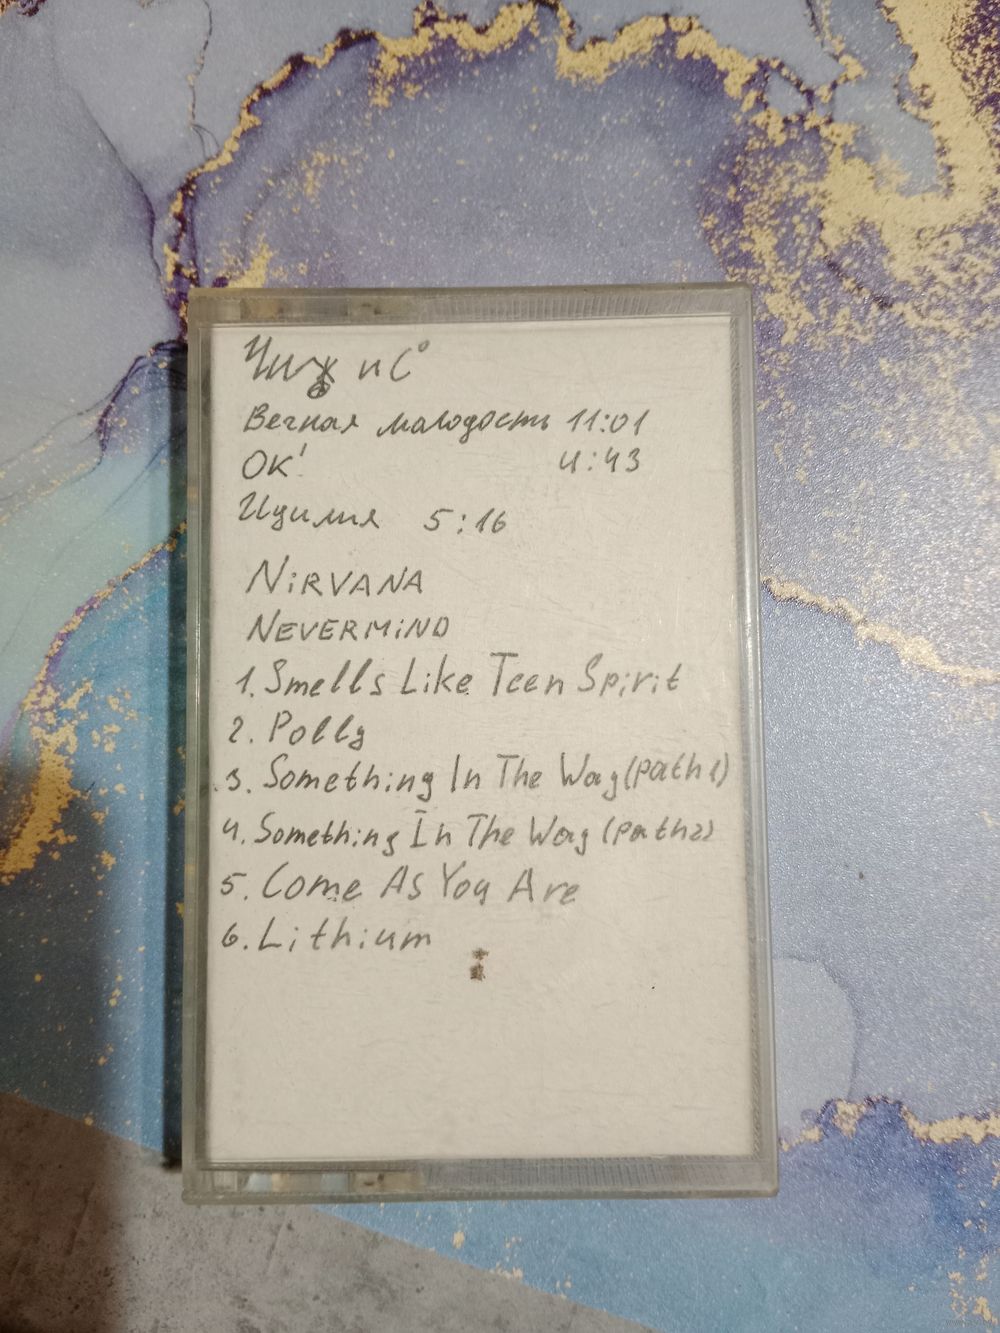 Чиж и С°
Вечная малодость 11:01
OK! 4:43
Идилия 5:16
NiRVANA
NEVERMiND
1. Smells Like Teen Spirit
2. Polly
3. Something In The Way (path 1)
4. Something In The Way (path 2)
5. Come As You Are
6. Lithium